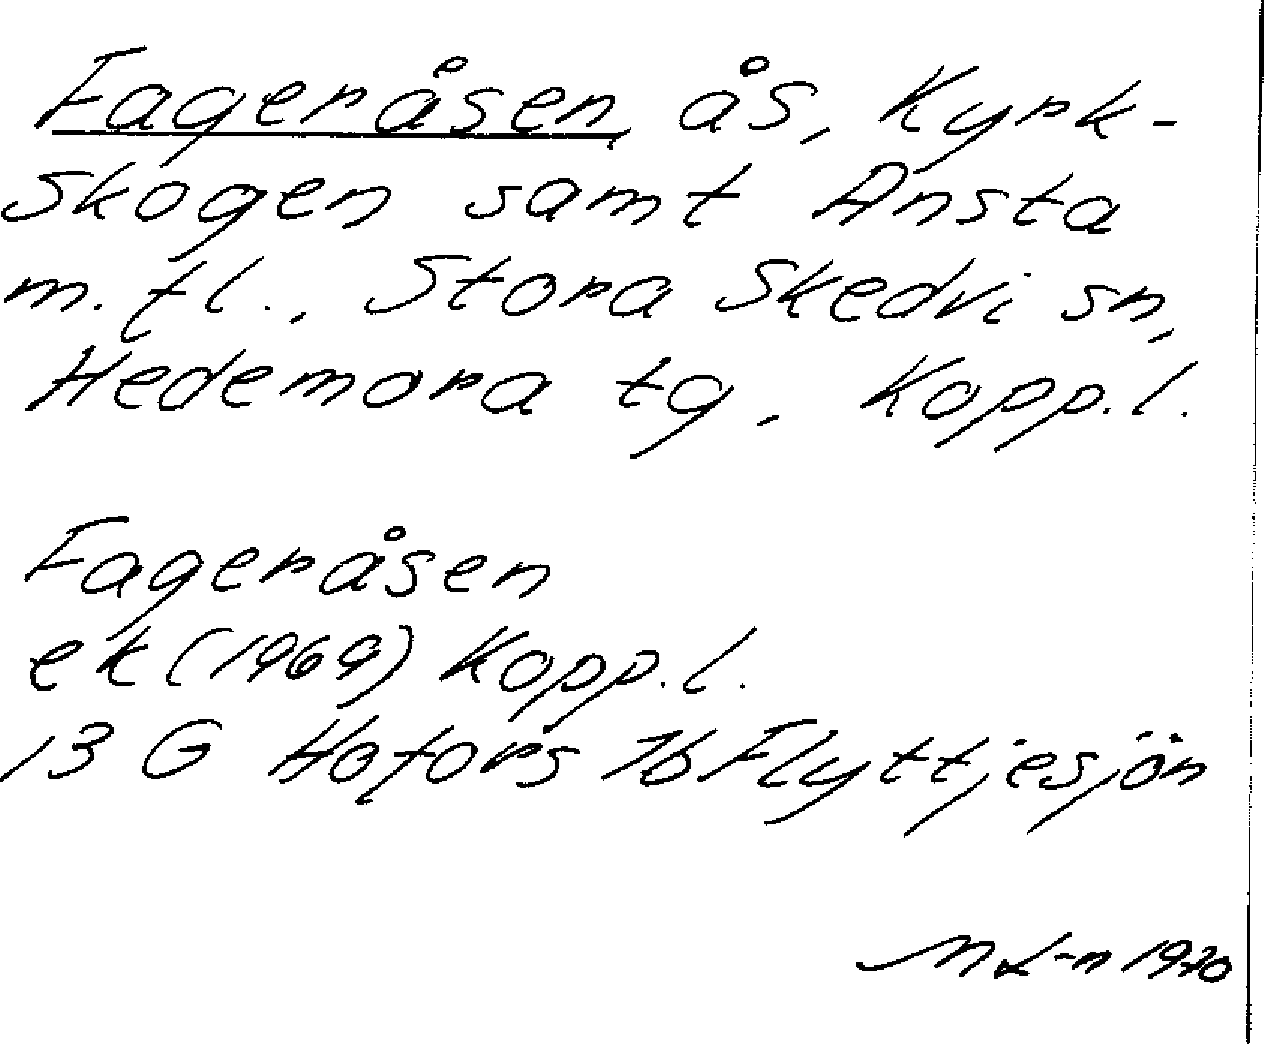 Fageråsen, ås, Kyrk-
skogen samt Ansta
m.fl., Stora Skedvi sn,
Hedemora tg, Kopp.l.
Fageråsen
ek (1969) Kopp.l.
13 G Hofors 7b Flyttjesjön
1970